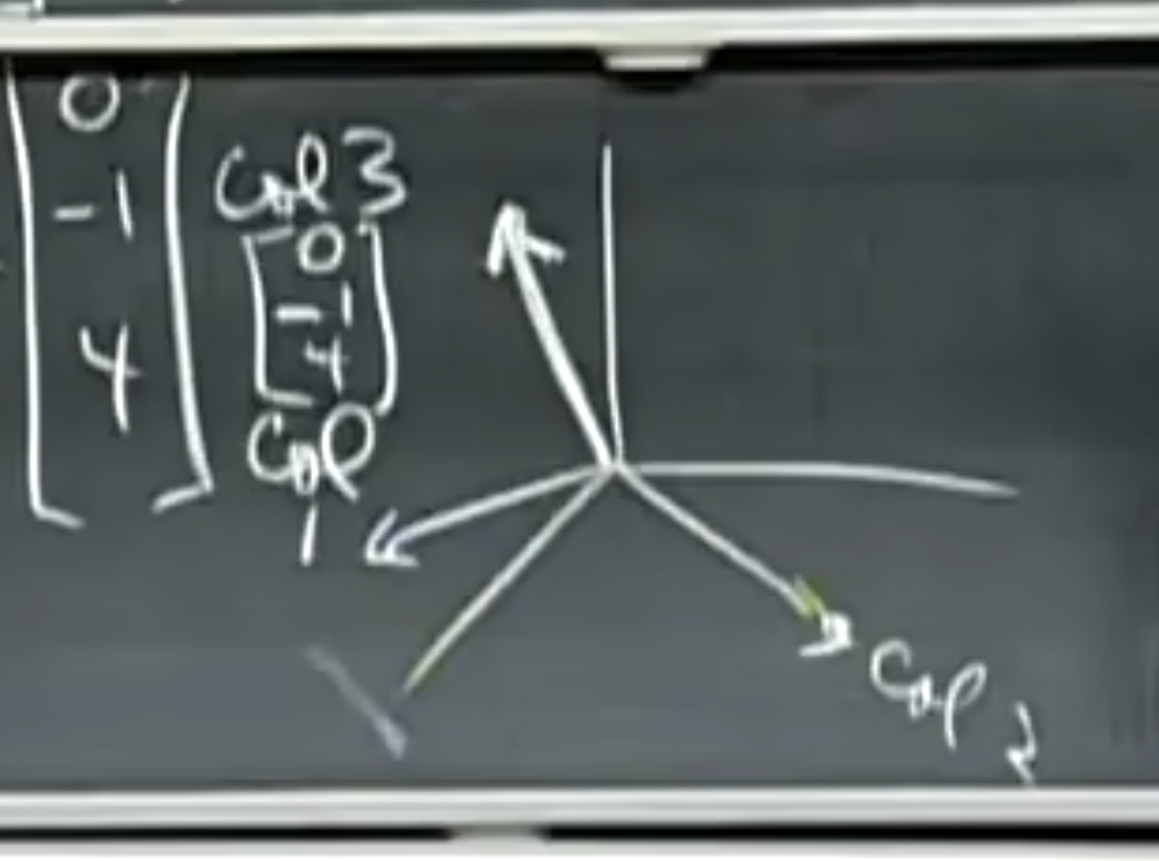 0
-1
4
Col 3
0
-1
4
Col
1
Col 2